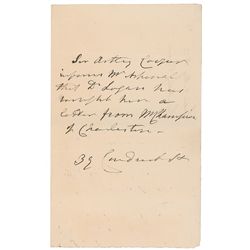 Sir Astley Cooper
informs Mr
that Dr Logan has
brought him a
letter from Mr
of Charleston.
39 Conduit St